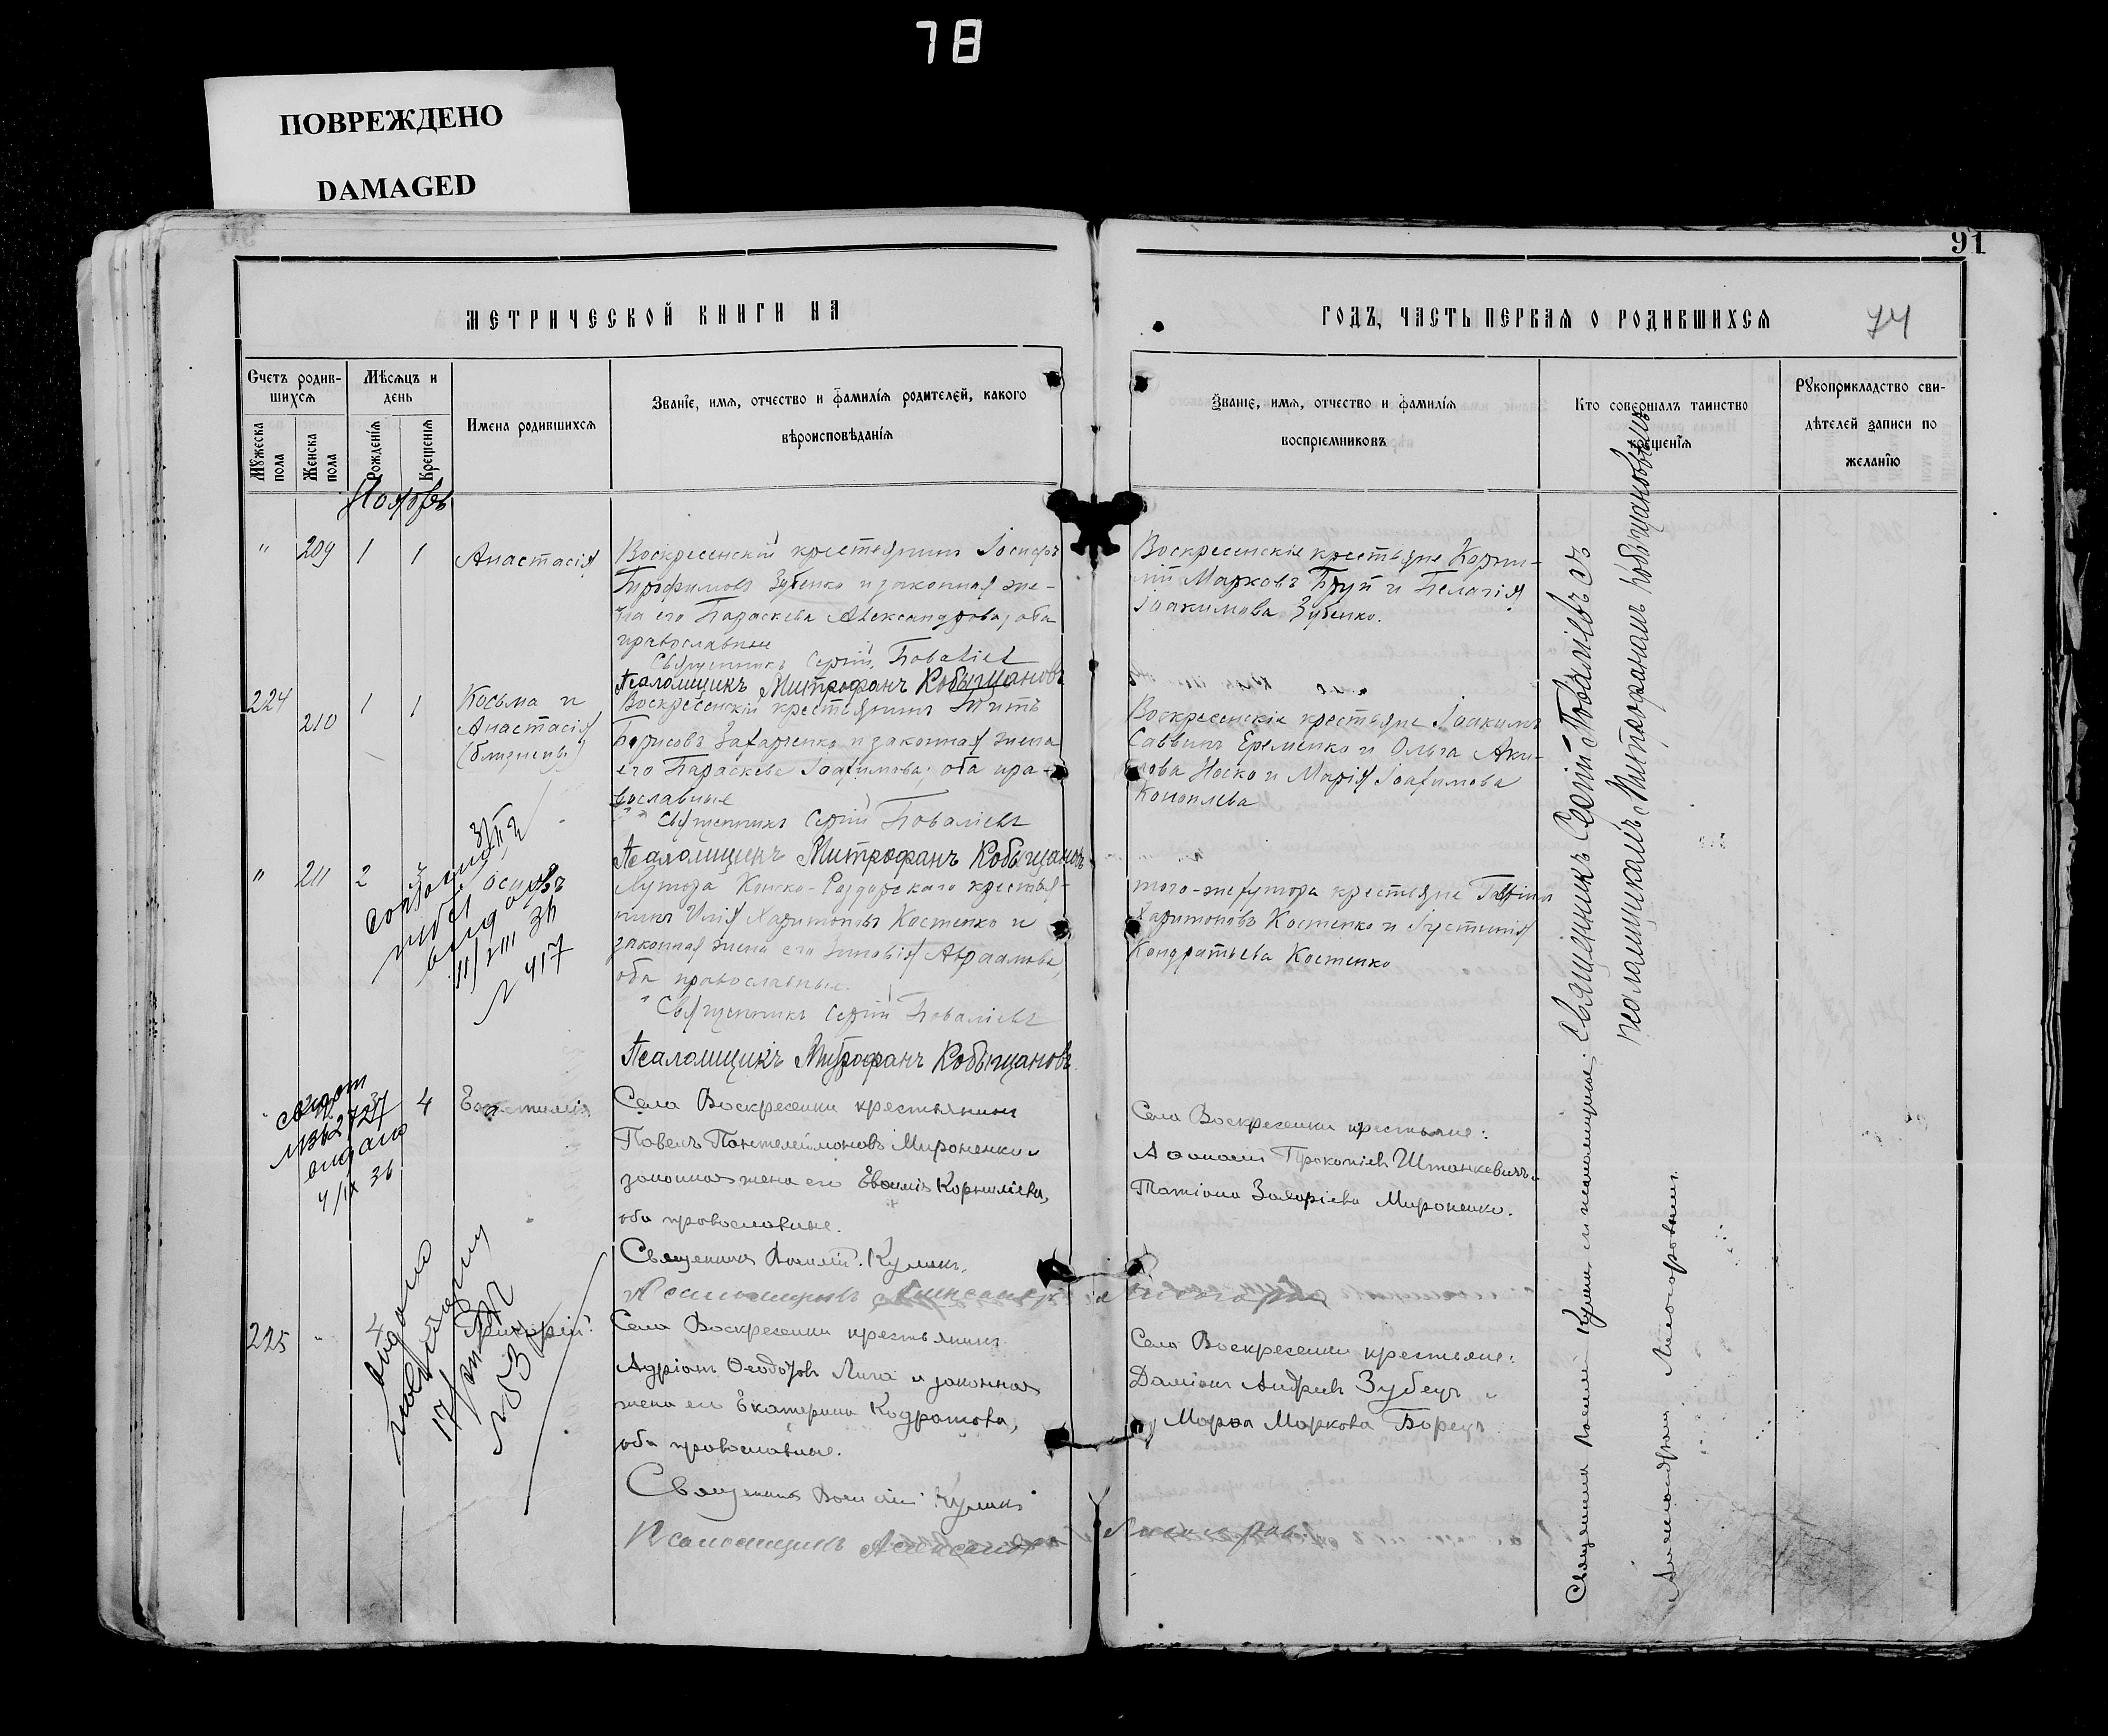 78
ПОВРЕЖДЕНО
DAMAGED
91
МЕТРИЧЕСКОЙ КНИГИ НА
ГОДЪ, ЧАСТЬ ПЕРВАЯ О РОДИВШИХСЯ
74
Счетъ родив-
шихся
Мѣсяцъ и
день
Мужеска пола
Женска пола
Рожденія
Крещенія
Имена родившихся
Званіе, имя, отчество и фамилія родителей, какого
вѣроисповѣданія
Званіе, имя, отчество и фамилія
воспріемниковъ
Кто совершалъ таинство
крещенія
Рукоприкладство сви-
дѣтелей записи по
желанію
Ноябрь
" 209 1 1 Анастасія
Воскресенскій крестьянинъ Іосифъ
Трофимовъ Зубенко и законная же-
на его Параскева Александрова, оба
православные
Священникъ Сергій Поваліевъ
Псаломщикъ Митрофанъ Кобыщановъ
Воскресенскіе крестьяне Корни-
лій Марковъ и Пелагія
Іоакимова Зубенко.
224 210 1 1 Косьма и
Анастасія
(близнецы)
Воскресенскій крестьянинъ Титъ
Борисовъ Захарченко и законная жена
его Параскева Іоакимова, оба пра-
вославные
Священникъ Сергій Поваліевъ
Псаломщикъ Митрофанъ Кобыщановъ
Воскресенскіе крестьяне Іоакимъ
Саввинъ Еременко и Ольга Аки-
мова Носко и Марія Іоакимова
Коноплева
" 211 2
11/VIII 36
N 417
Хутора Конско-Раздорскаго крестья-
нинъ Илія Харитоновъ Костенко и
законная жена его Зиновія Авраамова,
оба православные.
Священникъ Сергій Поваліевъ
Псаломщикъ Митрофанъ Кобыщановъ
того-же хутора крестьяне
Харитоновъ Костенко и Іустинія
Кондратьева Костенко
Священникъ Сергій Поваліевъ съ
псаломщикомъ Митрофаномъ Кобыщановымъ
4
выдано
4/IX 36
Села Воскресенки крестьянинъ
Павелъ Пантелеимоновъ Мироненко и
законная жена его Евѳимія Корниліева,
оба православные.
Священникъ Василій Куликъ
Псаломщикъ Александръ
Села Воскресенки крестьяне:
Аѳанасій Прокопіевъ Штанкевичъ и
Татіана Захаріева Мироненко.
225 4 Григорій
выдано
Села Воскресенки крестьянинъ
Адріанъ Ѳеодоровъ Лига и законная
жена его Екатерина Кодратова,
оба православные.
Священникъ Василій Куликъ
Псаломщикъ Александръ
Села Воскресенки крестьяне:
Даміанъ Андреевъ Зубецъ и
Марѳа Маркова Борецъ
Священникъ Василій Куликъ и псаломщикъ